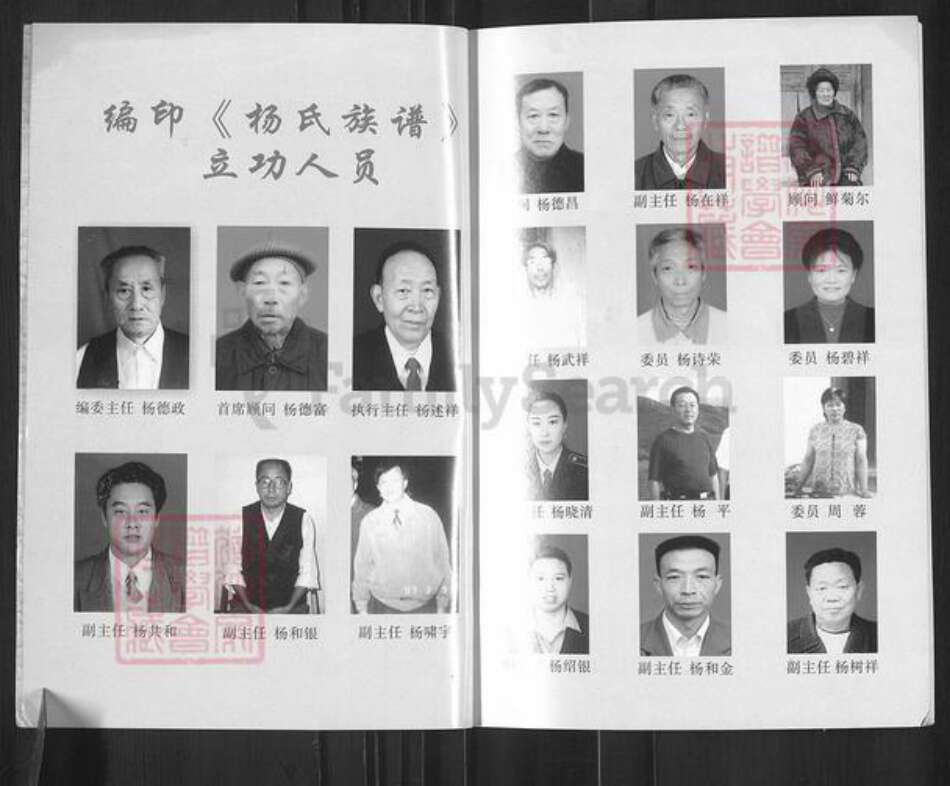 编印《杨氏族谱》
立功人员
编委主任 杨德政
首席顾问 杨德富
执行主任 杨述祥
副主任 杨共和
副主任 杨和银
副主任 杨啸宇
问 杨德昌
副主任 杨在祥
顾问 鲜菊尔
任 杨武祥
委员 杨诗荣
委员 杨碧祥
任 杨晓清
副主任 杨 平
委员 周 蓉
杨绍银
副主任 杨和金
副主任 杨树祥
FamilySearch